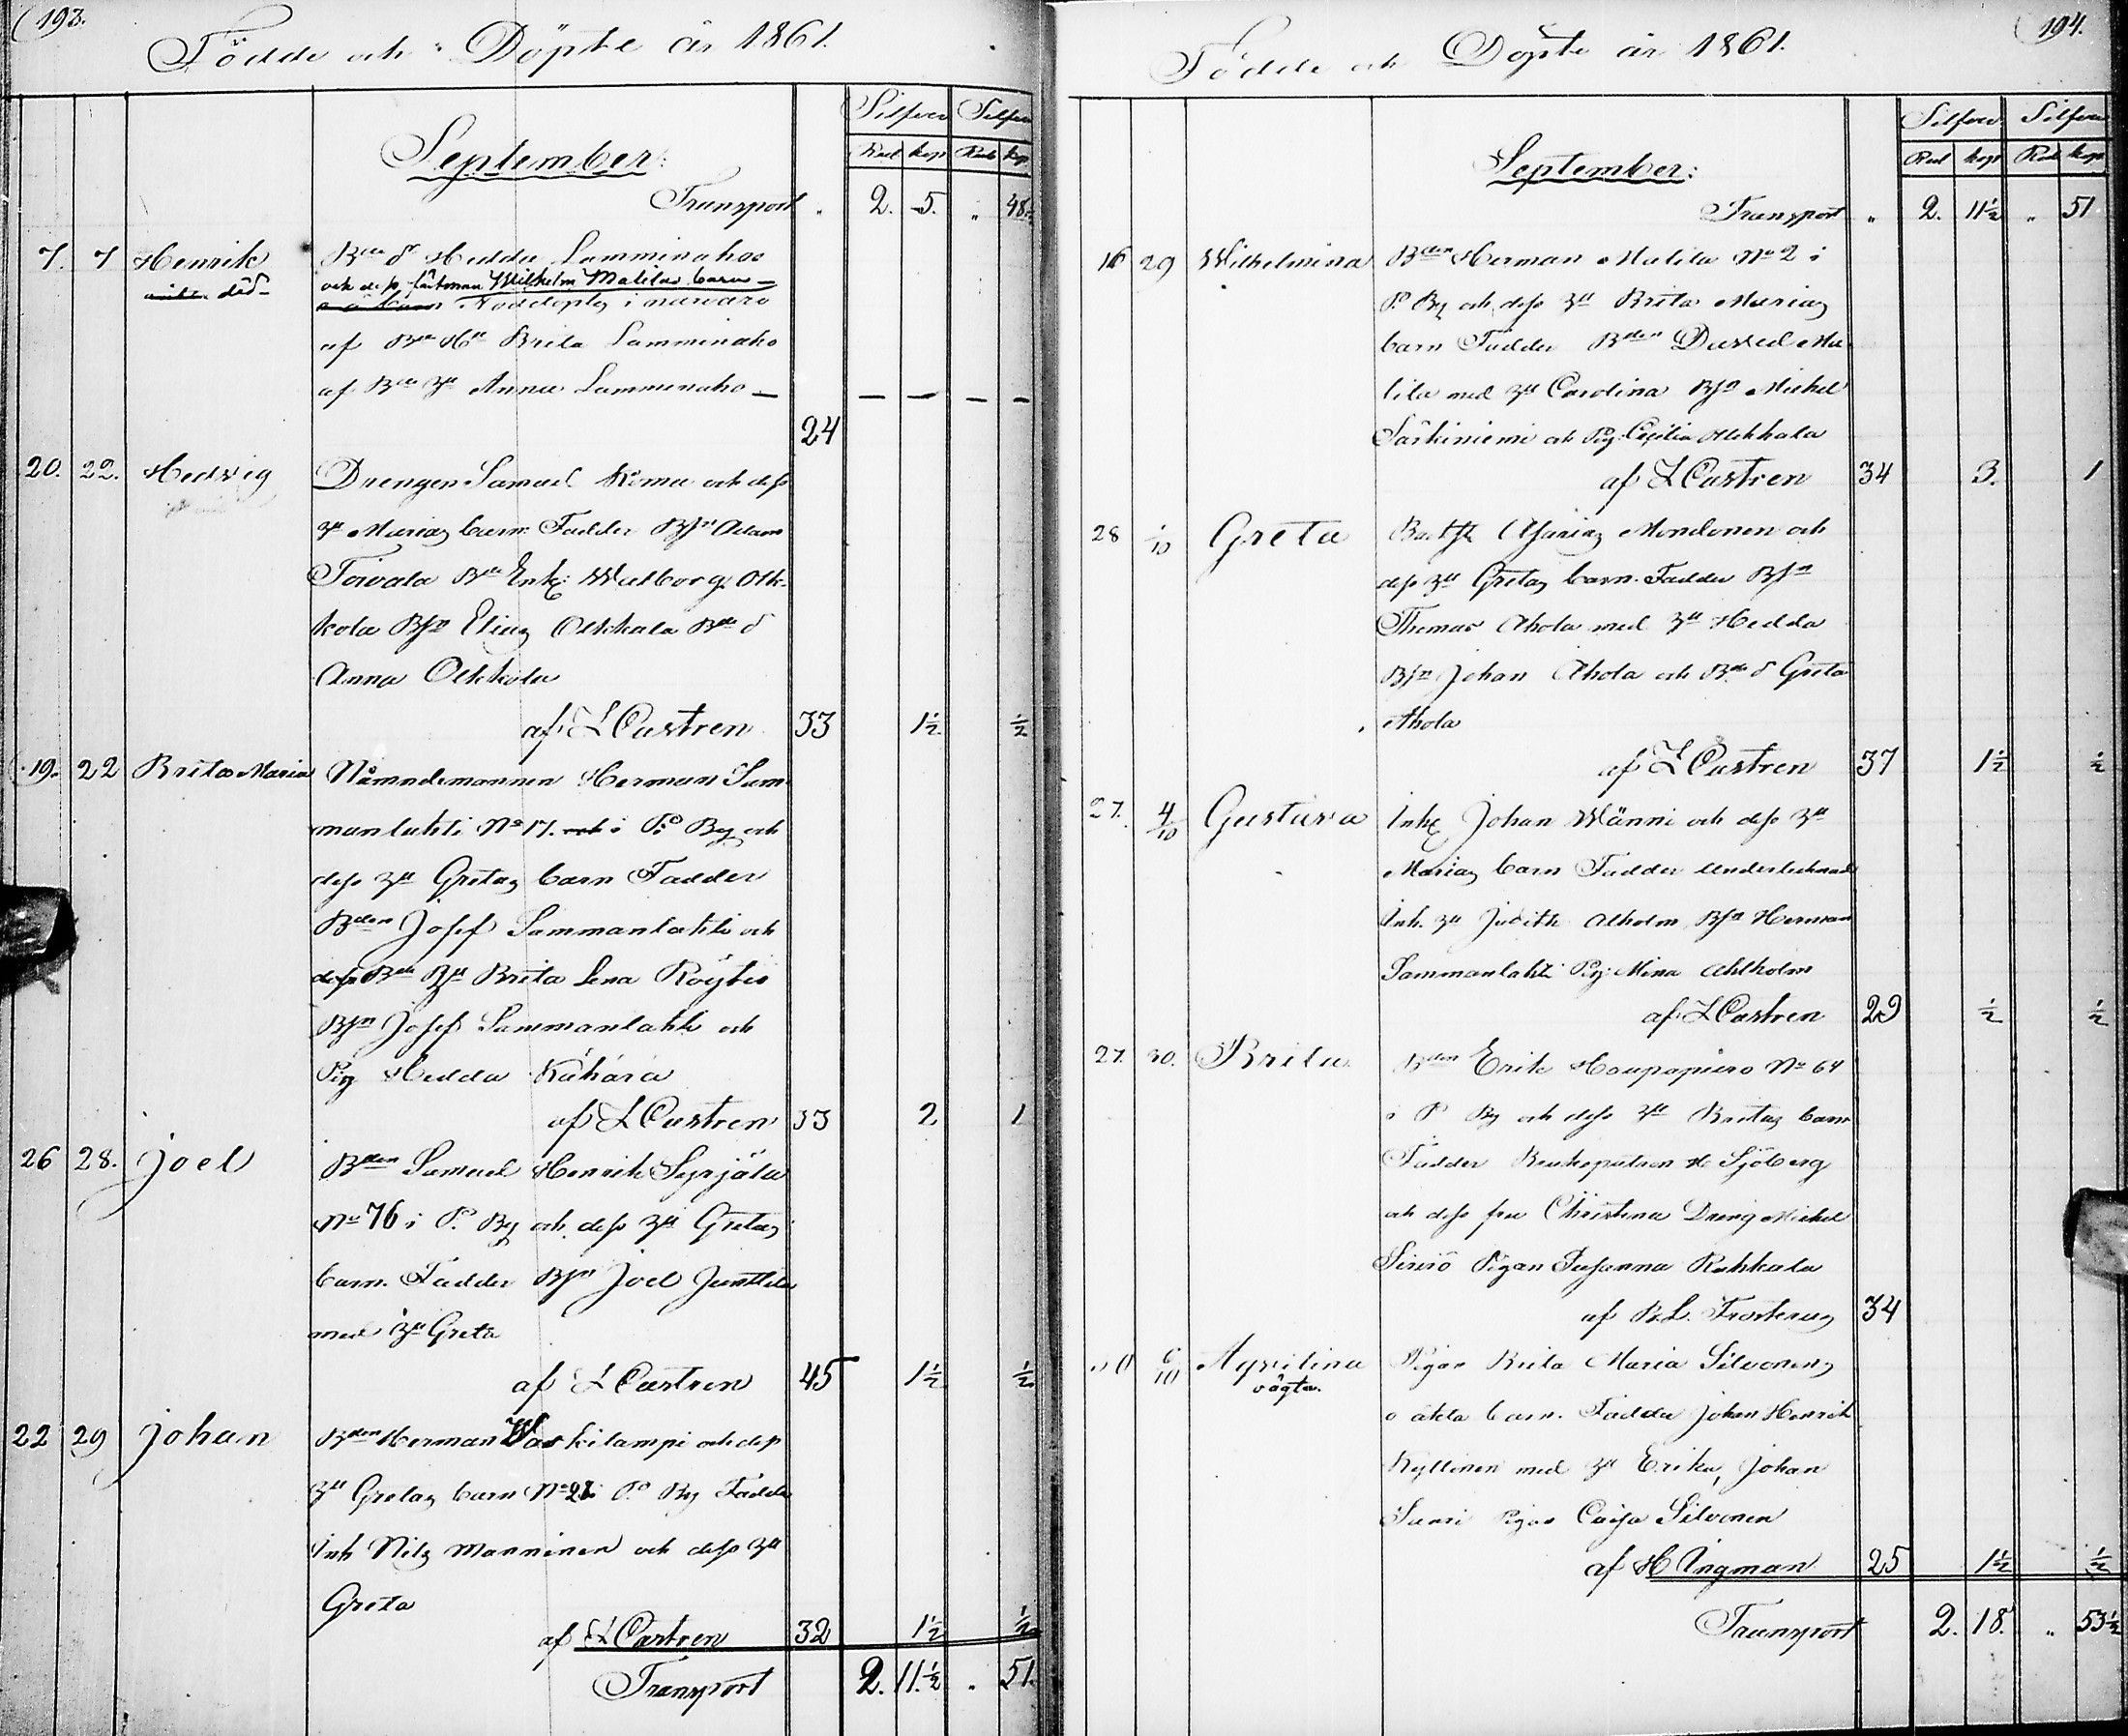 193.
Födde och Döpte år 1861.
Silfver Silfver
Rub kop Rub kop
September:
Transport " 2. 5. " 48½
7. 7 Henrik Bde dr Hedda Lamminaho
död och dess fästman Wilhelm Matilas barn
Nöddöpt i närvaro
af Bde Hu Brita Lamminaho
af Bde Hu Anna Lamminaho — — — — —
24
20. 22. Hedvig Drengen Samuel Koma och dess
Hu Marias barn. Fadder Bsn Adam
Toivola Bde Enk: Walborg Olk-
kola Bsn Elias Olkkola Bde d
Anna Olkkola
af L Castren 33 1½ ½
19. 22 Brita Maria Nämndemannen Herman Sam-
manlahti No 17. i Po By och
dess Hu Gretas barn Fadder
Bden Josef Sammanlahti och
Bde Hu Brita Lena Röytiö
Bsn Josef Sammanlahti och
Pig Hedda Kähärä
af L Castren 33 2 1
26 28. Joel Bden Samuel Henrik Syrjälä
No 76 i Po By och dess Hu Gretas
barn. Fadder Bsn Joel Junttila
med Hu Greta
af L Castren 45 1½ ½
22 29 Johan Bden Herman Waskilampi och dess
Hu Gretas barn No 28 i Po By Fadder
Inh Nils Manninen och dess Hu
Greta
af L Castren 32 1½ ½
Transport 2. 11.½ " 51.
194.
Födde och Döpte år 1861.
Silfver Silfver
Rub kop Rub kop
September:
Transport " 2. 11½ " 51
16 29 Wilhelmina Bden Herman Matila No 2 i
Po By och dess Hu Brita Marias
barn Fadder Bden David Ma-
tila med Hu Carolina Bsn Michel
Särkiniemi och Pig: Cecilia Olkkola
af L Castren 34 3. 1
28 1/10 Greta Asarias Mondonen och
dess Hu Gretas barn. Fadder Bsn
Thomas Ahola med Hu Hedda
Bsn Johan Ahola och Bde d Greta
Ahola
af L Castren 37 1½ ½
27. 4/10 Gustava Inh Johan Wänni och dess Hu
Marias barn Fadder undertecknad
Inh. Hu Judith Alholm Bsn Herman
Sammanlahti Pig: Mina Ahlholm
af L Castren 29 ½ ½
27. 30. Brita Bden Erik Haapapuro No 64
i Po By och dess Hu Britas barn
Fadder Brukspatron H Sjöberg
och dess fru Christina Dreng Michel
Sirviö Pigan Susanna Rukkala
af B.L. Frosterus 34
6/10 Agvilina Pigan Brita Maria Silvonens
oägta. o äkta barn. Fadder Johan Henrik
Kyllönen med Hu Erika, Johan
Sunri Pigan Caisa Silvonen
af H Ingman 25 1½ ½
Transport 2. 18. " 53½